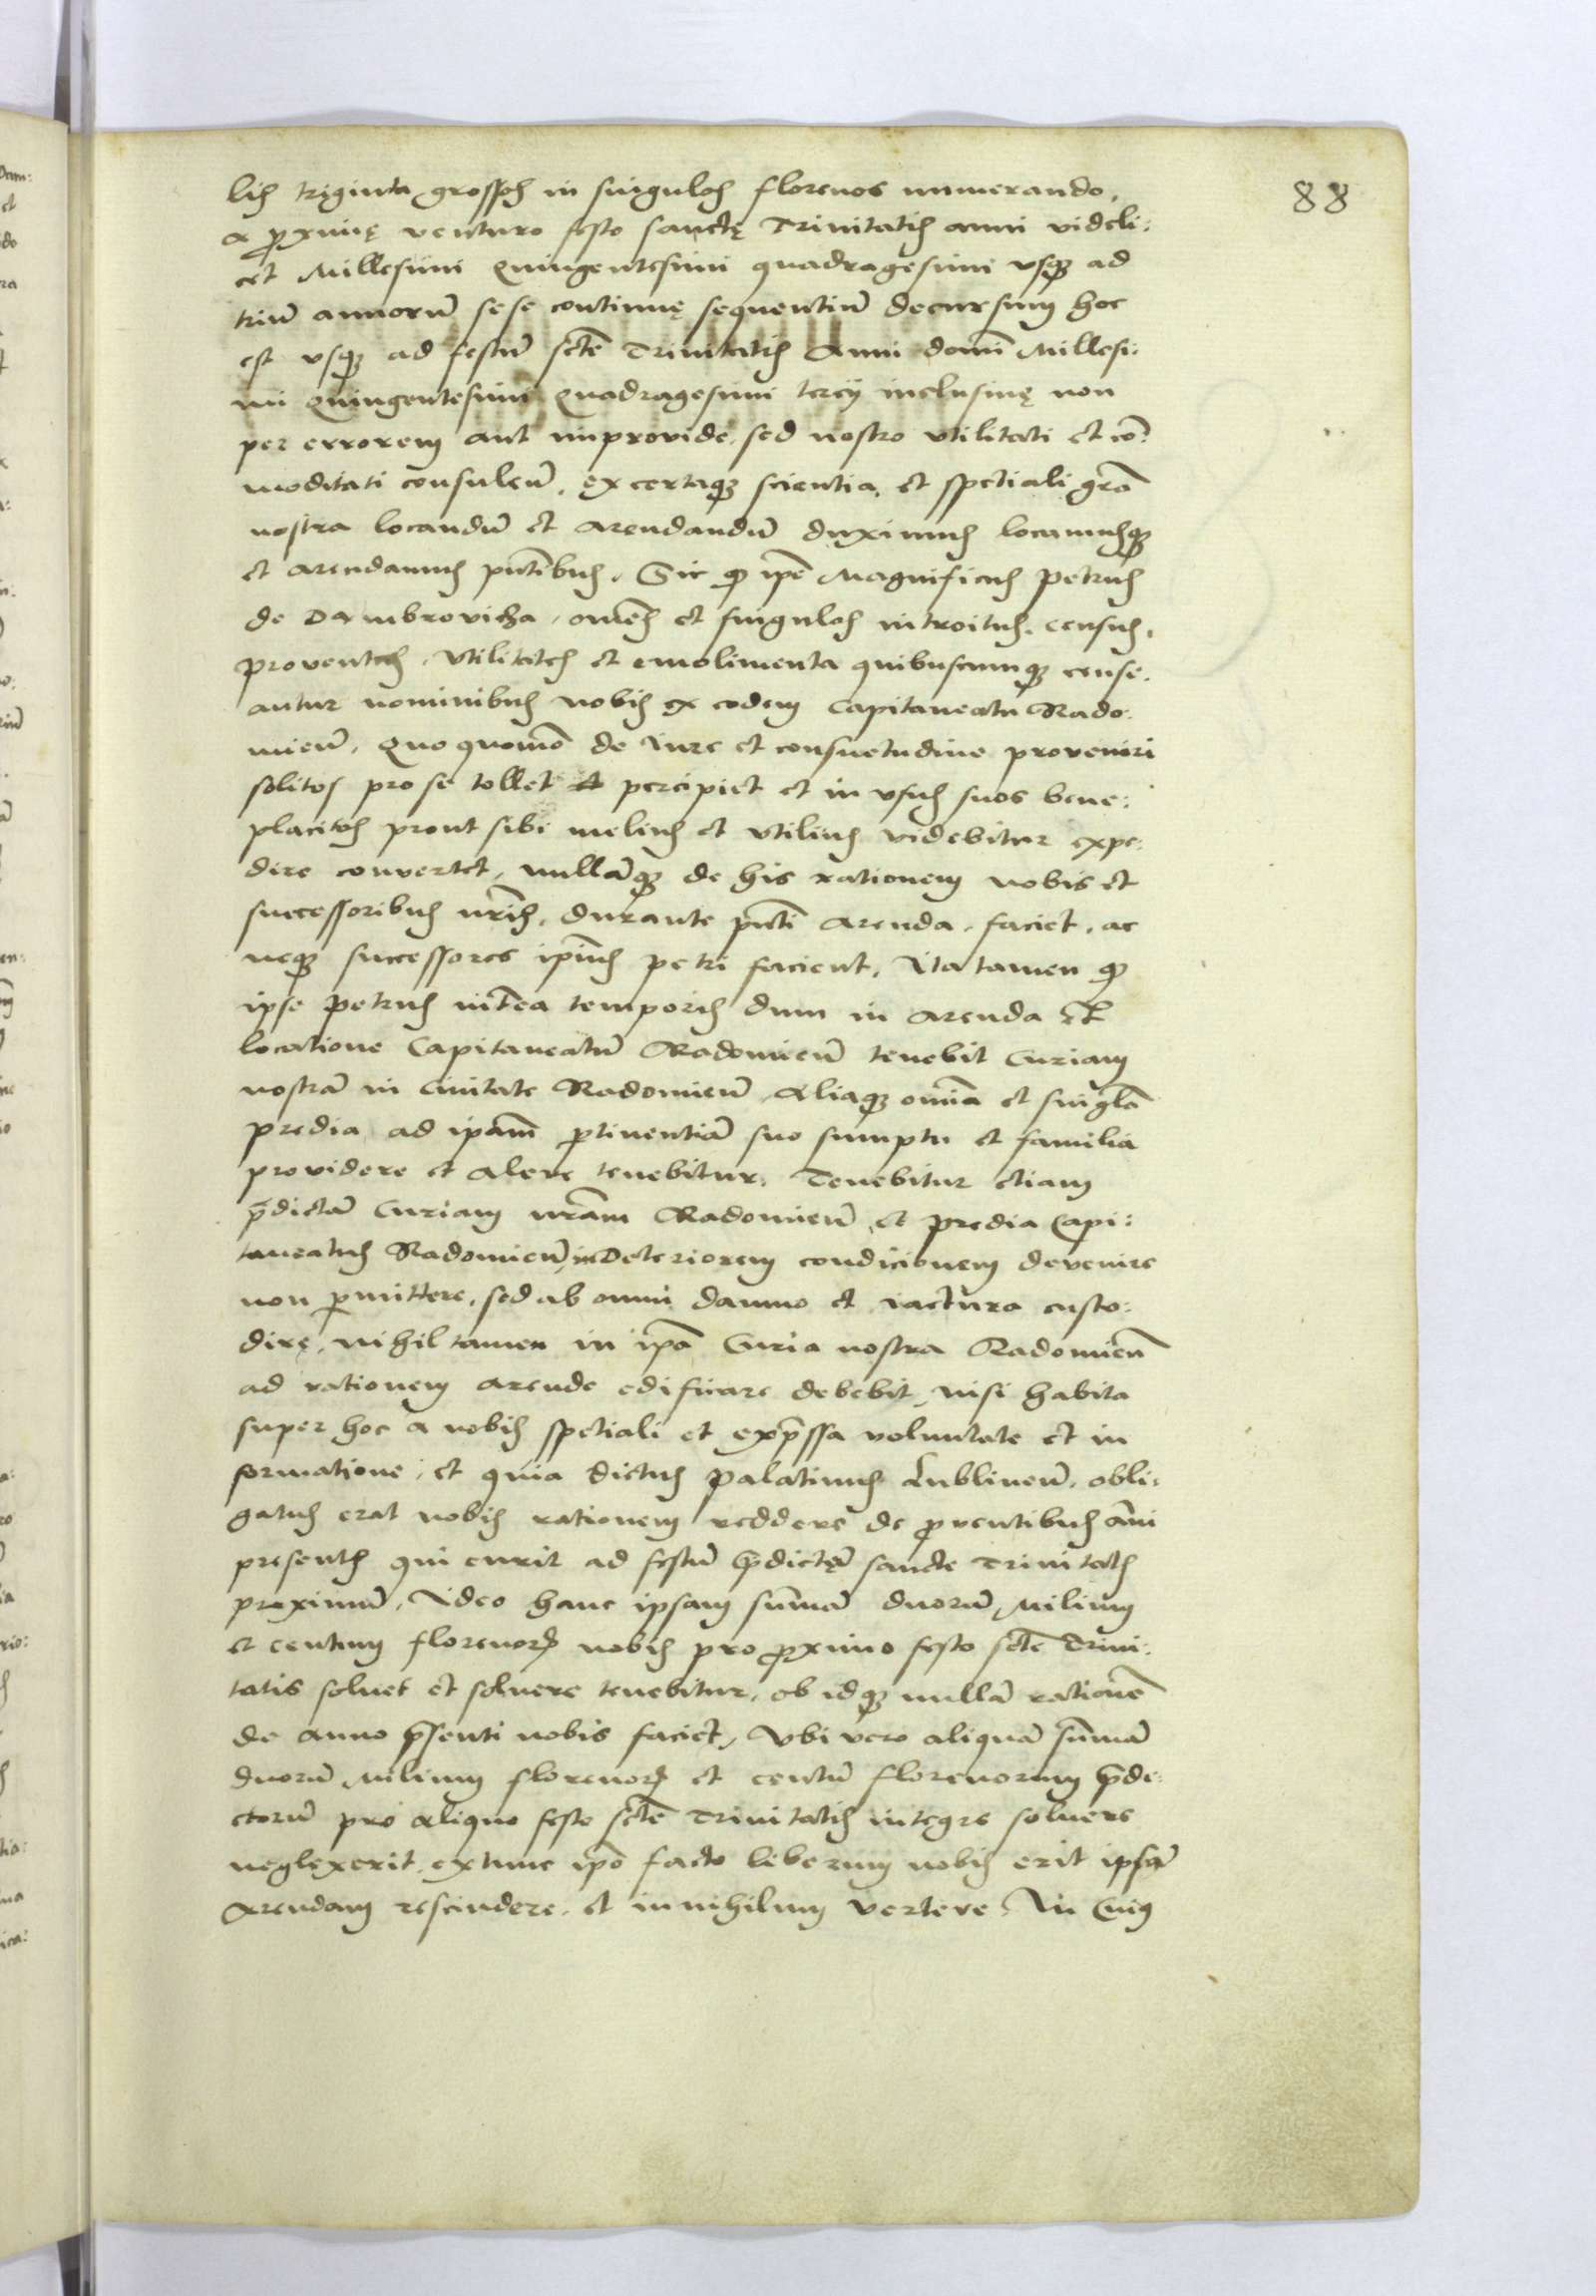 88
lis triginta grossos in singulos florenos numerando,
a proximę venturo festo sanctę Trinitatis anni videli:
cet Millesimi Quingentesimi quadragesimi vsque ad
triū annorū sese continuę sequentiū decursum hoc
est vsque ad festū sctē Trinitatis Anni domī Millesi:
mi Quingentesimi Quadragesimi tercij inclusiuę non
per errorem aut improvide, sed nostro vtilitati et cō:
moditati consuleñ, ex certaque scientia, et spetiali grā
nostra locandū et arendandū duximus locamusque
et arendamus pñtibus. Sic quod ipē Magnificus Petrus
de Dambrovicza, omēs et singulos introitus, census,
proventus, vtilitates et emolimenta quibuscumque cense:
antur nominibus nobis ex eodem Capitaneatu Rado:
mieñ, quo quomō de iure et consuetudine proveniri
solitos pro se tollet et percipiet et in vsus suos bene:
placitos prout sibi melius et vtilius videbitur expe:
dire convertet, nullāque de his rationem nobis et
successoribus nr̄is, durante pñti arenda, faciet, ac
neque successores ipīus petri facient, Ita tamen quod
ipse Petrus intēa temporis dum in arenda et
locatione Capitaneatū Radomieñ tenebit Curiam
nostrā in Ciuitate Radomieñ, Aliaque omīa et singlā
predia ad ipām ptinentiā suo sumptu et familia
providere et alere tenebitur. Tenebitur etiam
p̄dictā Curiam nr̄am Radomieñ et predia Capi:
taneatus Radomieñ, in Deteriorem condicionem devenire
non pmittere, sed ab omni damno et iactura custo:
dirę, nihil tamen in ipā Curia nostra Radomieñ
ad rationem arende edificare debebit, nisi habita
super hoc a nobis spetiali et exp̄ssa voluntate et in
formatione, et quia dictus Palatinus Lublineñ, obli:
gatus erat nobis rationem reddere de proventibus āni
presentis qui currit ad festū p̄dictę sancte Trinitatis
proximū, Ideo hanc ipsam sūmā duorū Milium
et centum florenorum nobis pro proximo festo sctē Trini:
tatis soluet et soluere tenebitur, ob idque nullā rationē
de anno p̄senti nobis faciet, Vbi vero aliquā sūmā
duorū Milium florenorum et centū florenorum p̄di:
ctorū pro aliquo festo sctē Trinitatis integre soluere
neglexerit, extunc ipō facto liberum nobis erit ipsā
arendam rescindere, et in nihilum vertere, In Cuius